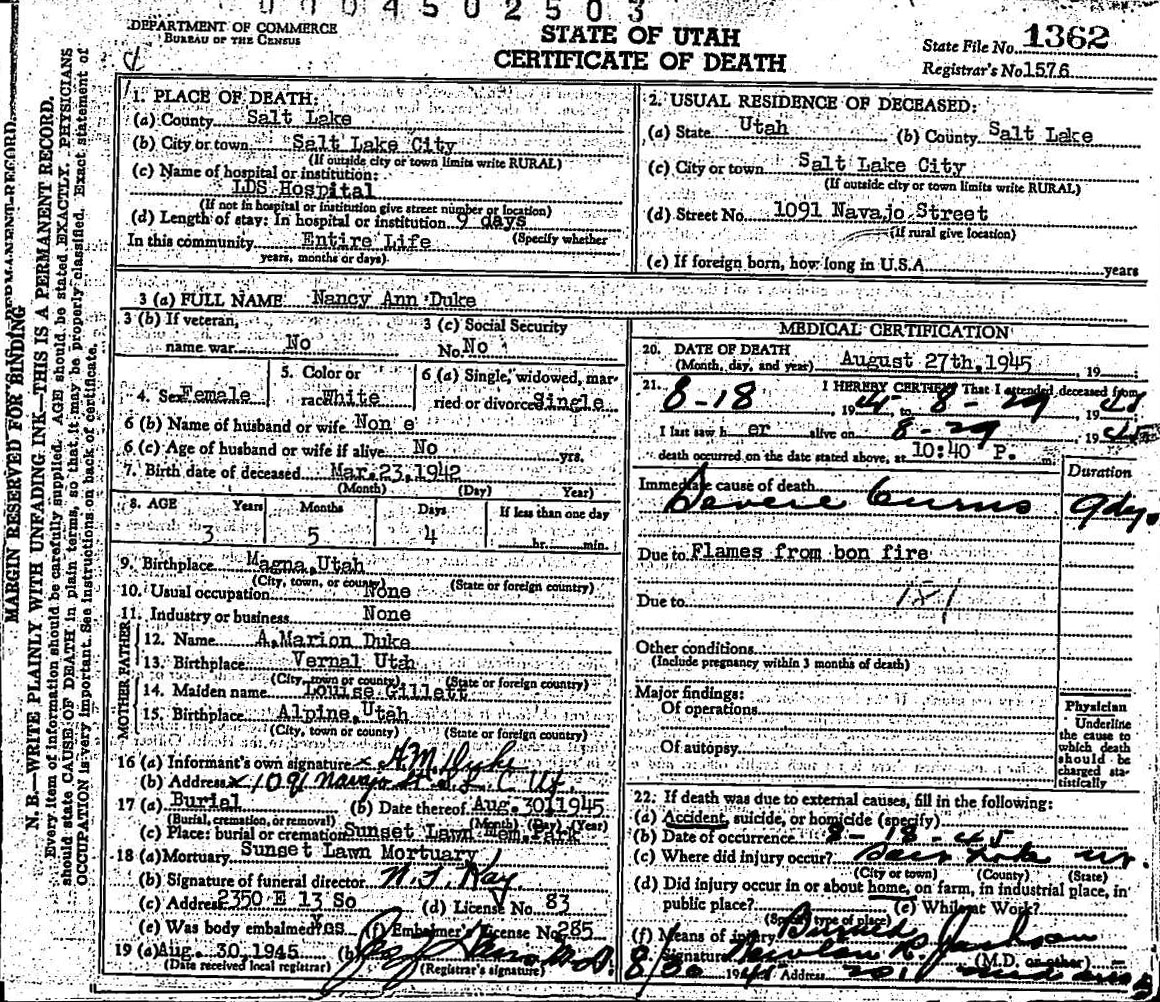 0004502503
DEPARTMENT OF COMMERCE
BUREAU OF THE CENSUS
STATE OF UTAH
CERTIFICATE OF DEATH
State File No. 1362
Registrar's No 1576
MARGIN RESERVED FOR BINDING
N. B.—WRITE PLAINLY WITH UNFADING INK—THIS IS A PERMANENT RECORD.
Every item of information should be carefully supplied. AGE should be stated EXACTLY. PHYSICIANS
should state CAUSE OF DEATH in plain terms, so that it may be properly classified. Exact statement of
OCCUPATION is very important. See instructions on back of certificate.
1. PLACE OF DEATH:
(a) County Salt Lake
(b) City or town Salt Lake City
(If outside city or town limits write RURAL)
(c) Name of hospital or institution:
LDS Hospital
(If not in hospital or institution give street number or location)
(d) Length of stay: In hospital or institution 9 days
(Specify whether
In this community Entire Life
years, months or days)
2. USUAL RESIDENCE OF DECEASED:
(a) State Utah (b) County Salt Lake
(c) City or town Salt Lake City
(If outside city or town limits write RURAL)
(d) Street No. 1091 Navajo Street
(If rural give location)
(e) If foreign born, how long in U.S.A. years
3 (a) FULL NAME Nancy Ann Duke
3 (b) If veteran, name war No
3 (c) Social Security No. No
4. Sex Female
5. Color or race White
6 (a) Single, widowed, married or divorced Single
6 (b) Name of husband or wife Non e
6 (c) Age of husband or wife if alive No yrs.
7. Birth date of deceased Mar. 23, 1942
(Month) (Day) Year)
8. AGE Years Months Days If less than one day
3 5 4 hr. min.
9. Birthplace Magna, Utah
(City, town, or county) (State or foreign country)
10. Usual occupation None
11. Industry or business None
FATHER
12. Name A. Marion Duke
13. Birthplace Vernal Utah
(City, town or county) (State or foreign country)
MOTHER
14. Maiden name Louise Gillett
15. Birthplace Alpine, Utah
(City, town or county) (State or foreign country)
16 (a) Informant's own signature x A.M. Duke
(b) Address x 1091 Navajo St. S.L.C. Ut.
17 (a) Burial (b) Date thereof Aug. 30, 1945
(Burial, cremation, or removal) (Month) (Day) (Year)
(c) Place: burial or cremation Sunset Lawn Mem. Park
18 (a) Mortuary Sunset Lawn Mortuary
(b) Signature of funeral director
(c) Address 2350 E 13 So (d) License No. 83
(e) Was body embalmed Yes (f) Embalmer's License No. 285
19 (a) Aug. 30, 1945 (b)
(Date received local registrar) (Registrar's signature)
MEDICAL CERTIFICATION
20. DATE OF DEATH
(Month, day, and year) August 27th, 1945, 19
21. I HEREBY CERTIFY That I attended deceased from
8-18, 1945, to 8-29, 19
I last saw h er alive on 8-29, 1945
death occurred on the date stated above, at 10:40 P. m.
Duration
Immediate cause of death
Severe burns 9 dys.
Due to Flames from bon fire
Due to
Other conditions
(Include pregnancy within 3 months of death)
Major findings:
Of operations
Of autopsy
Physician
Underline
the cause to
which death
should be
charged sta-
tistically
22. If death was due to external causes, fill in the following:
(a) Accident, suicide, or homicide (specify)
(b) Date of occurrence 8-18-45
(c) Where did injury occur? Salt Lake Ut.
(City or town) (County) (State)
(d) Did injury occur in or about home, on farm, in industrial place, in
public place? (e) While at Work?
(Specify type of place)
(f) Means of injury Burned
Signature (M.D. or other)
8/30 194 Address